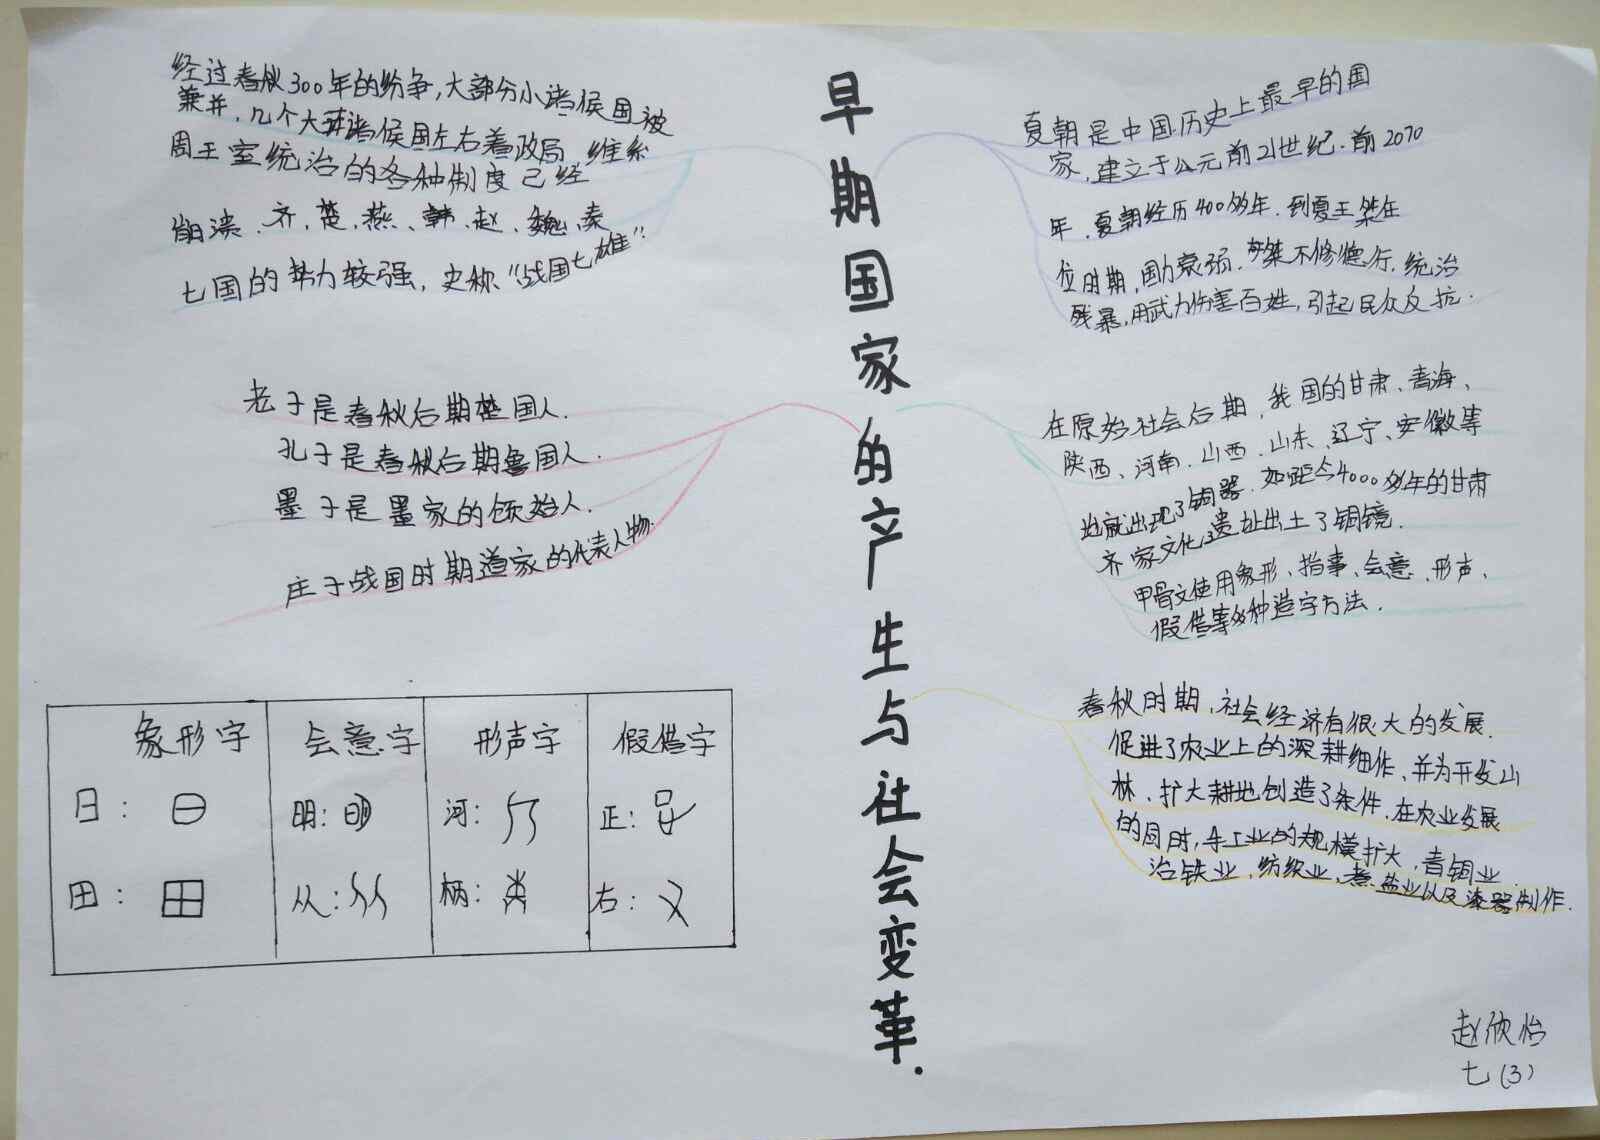 早期国家的产生与社会变革.
经过春秋300年的纷争,大部分小诸侯国被
兼并,几个大诸侯国左右着政局,维系
周王室统治的各种制度已经
崩溃.齐,楚,燕、韩、赵、魏、秦
七国的势力较强,史称"战国七雄".
老子是春秋后期楚国人.
孔子是春秋后期鲁国人.
墨子是墨家的创始人.
庄子战国时期道家的代表人物.
象形字 会意字 形声字 假借字
日: 明: 河: 正:
田: 从: 柄: 右:
夏朝是中国历史上最早的国
家,建立于公元前21世纪.前2070
年.夏朝经历400多年.到夏王桀在
位时期,国力衰弱.桀不修德行.统治
残暴,用武力伤害百姓,引起民众反抗.
在原始社会后期,我国的甘肃、青海、
陕西、河南.山西、山东、辽宁、安徽等
地就出现了铜器.如距今4000多年的甘肃
齐家文化遗址出土了铜镜.
甲骨文使用象形、指事、会意、形声、
假借等多种造字方法.
春秋时期,社会经济有很大的发展.
促进了农业上的深耕细作、并为开发山
林、扩大耕地创造了条件.在农业发展
的同时,手工业的规模扩大,青铜业.
冶铁业,纺织业、煮盐业以及漆器制作.
赵欣怡
七(3)